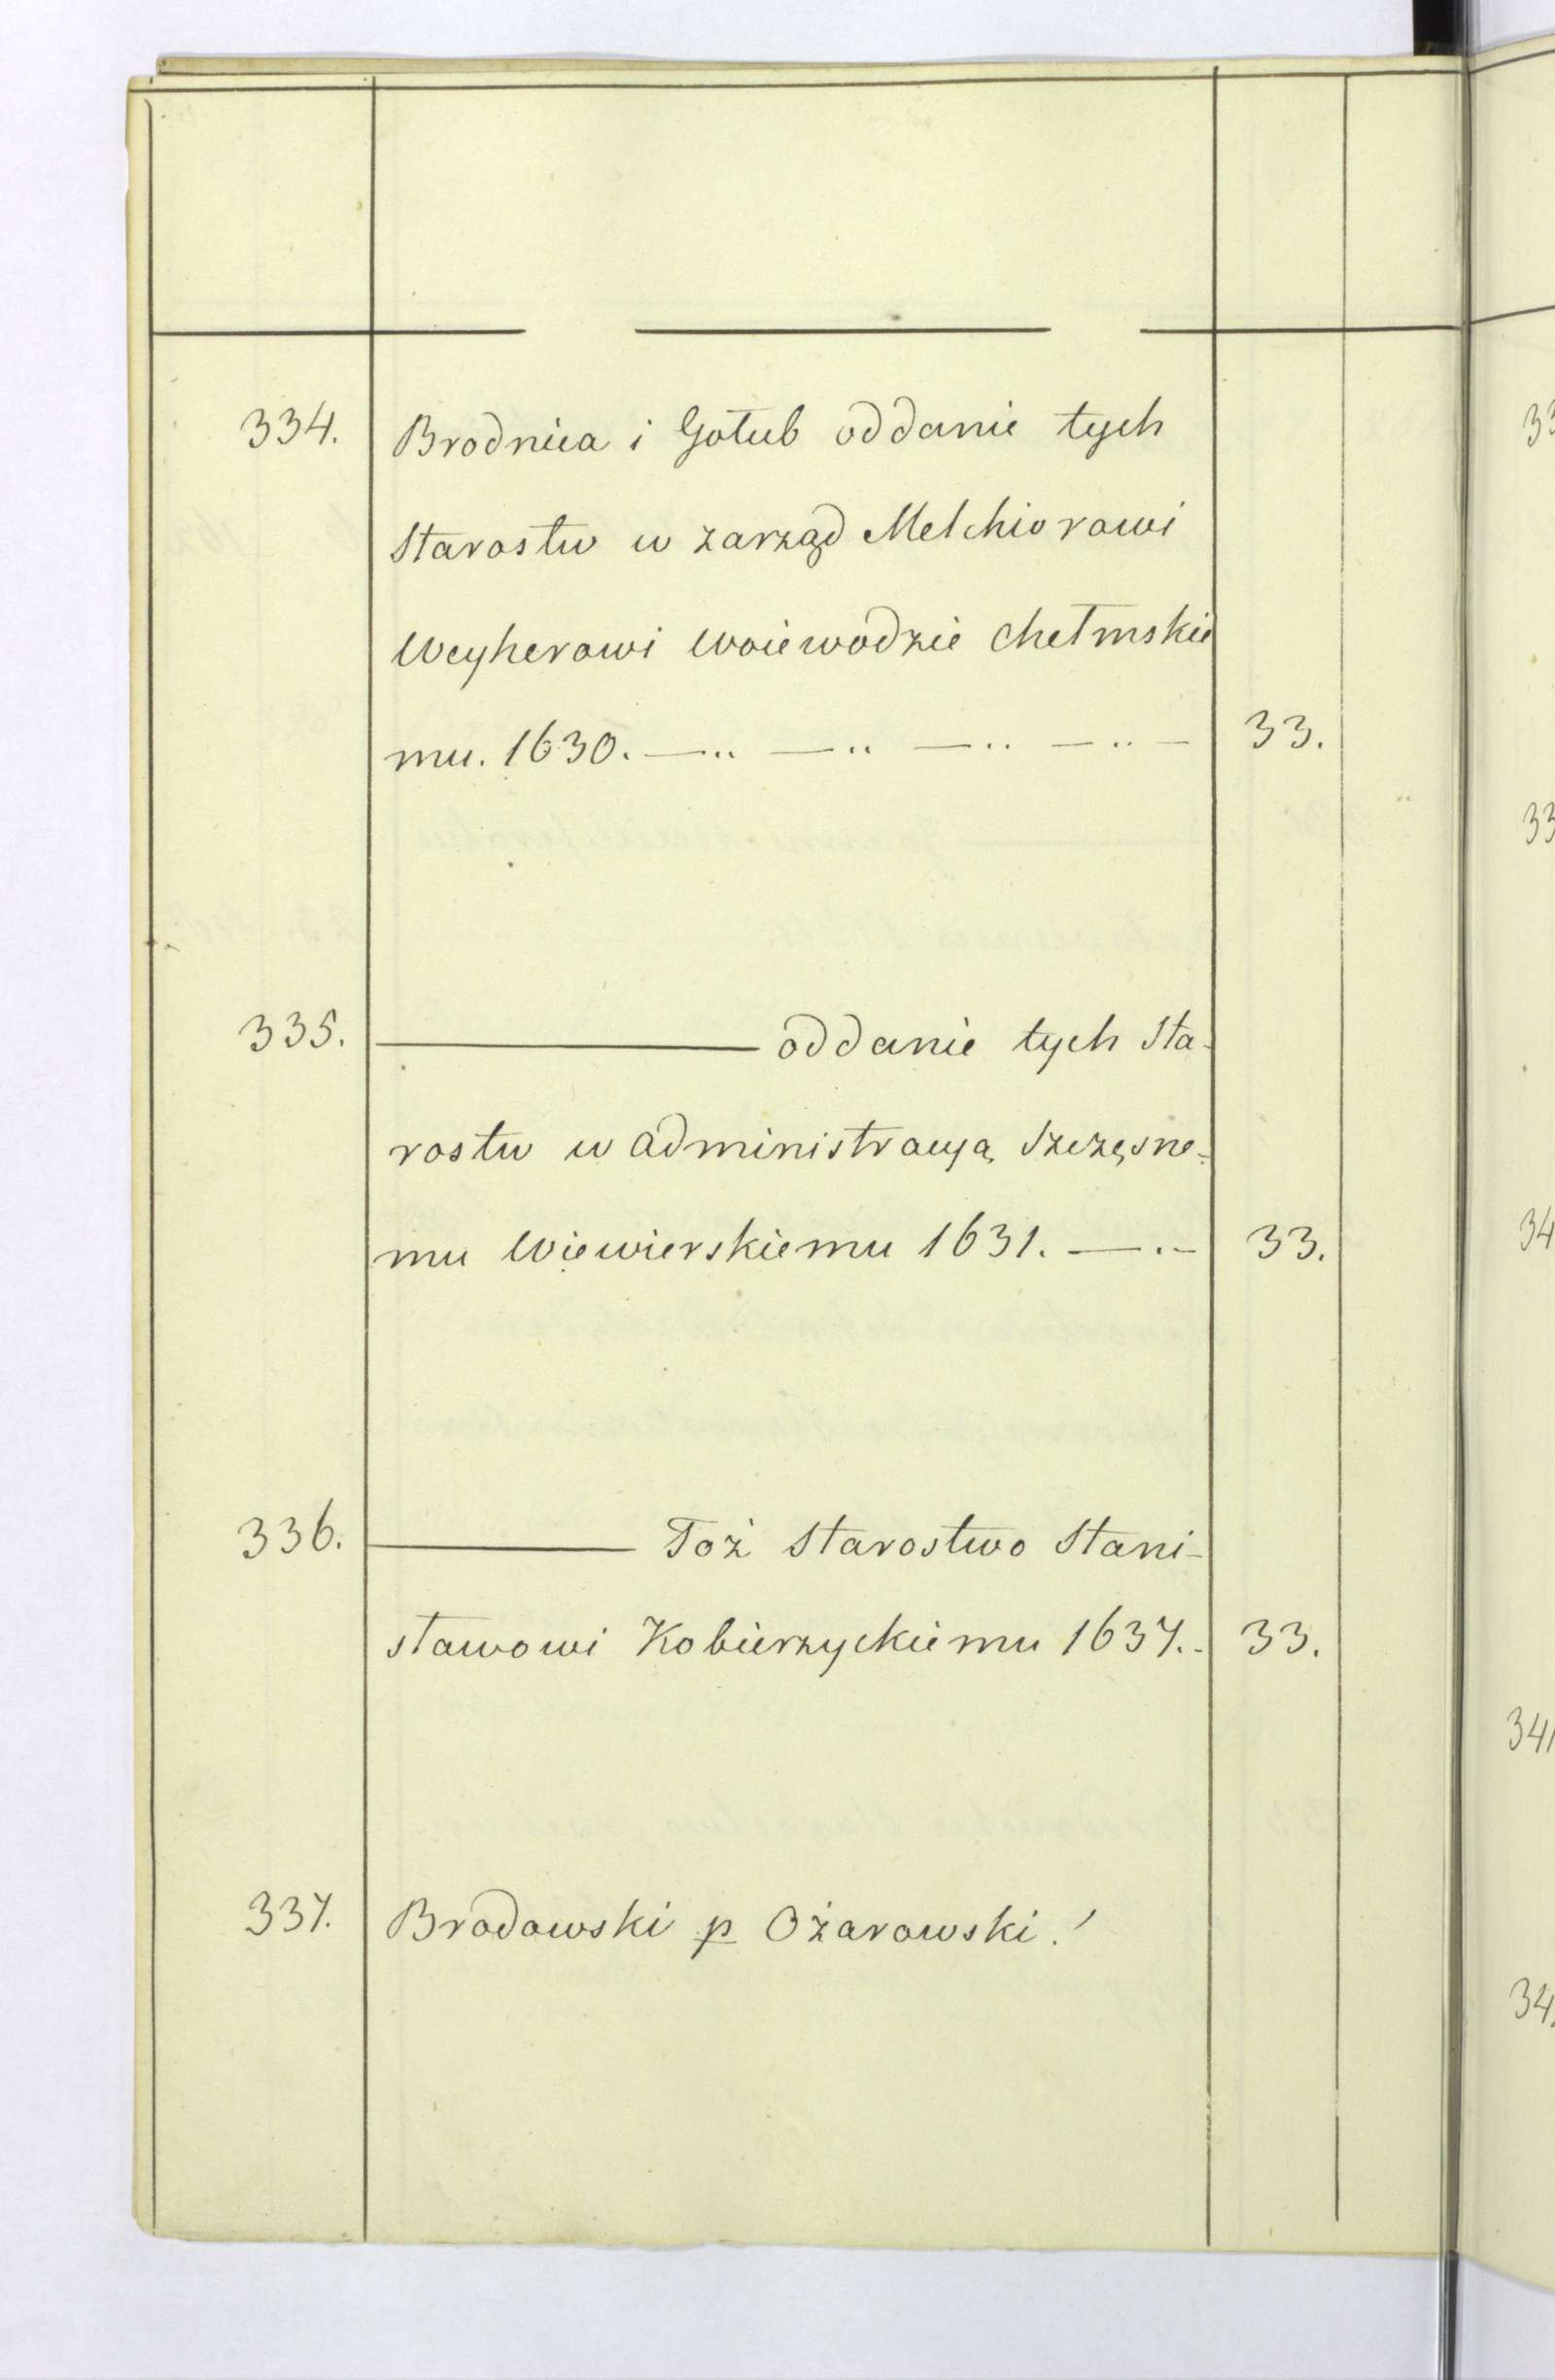 334. Brodnica i Gołub oddanie tych
Starostw w zarząd Melchiorowi
Weyherowi Woiewodzie Chełmskie
mu. 1630. —.. —.. —.. —.. — 33.
335. ——— oddanie tych Sta-
rostw w administracyą Szczęsne-
mu Wiewierskiemu 1631. —.— 33.
336. ——— Toż Starostwo Stani-
sławowi Kobierzyckiemu 1637.- 33.
337. Brodowski p Ożarowski.